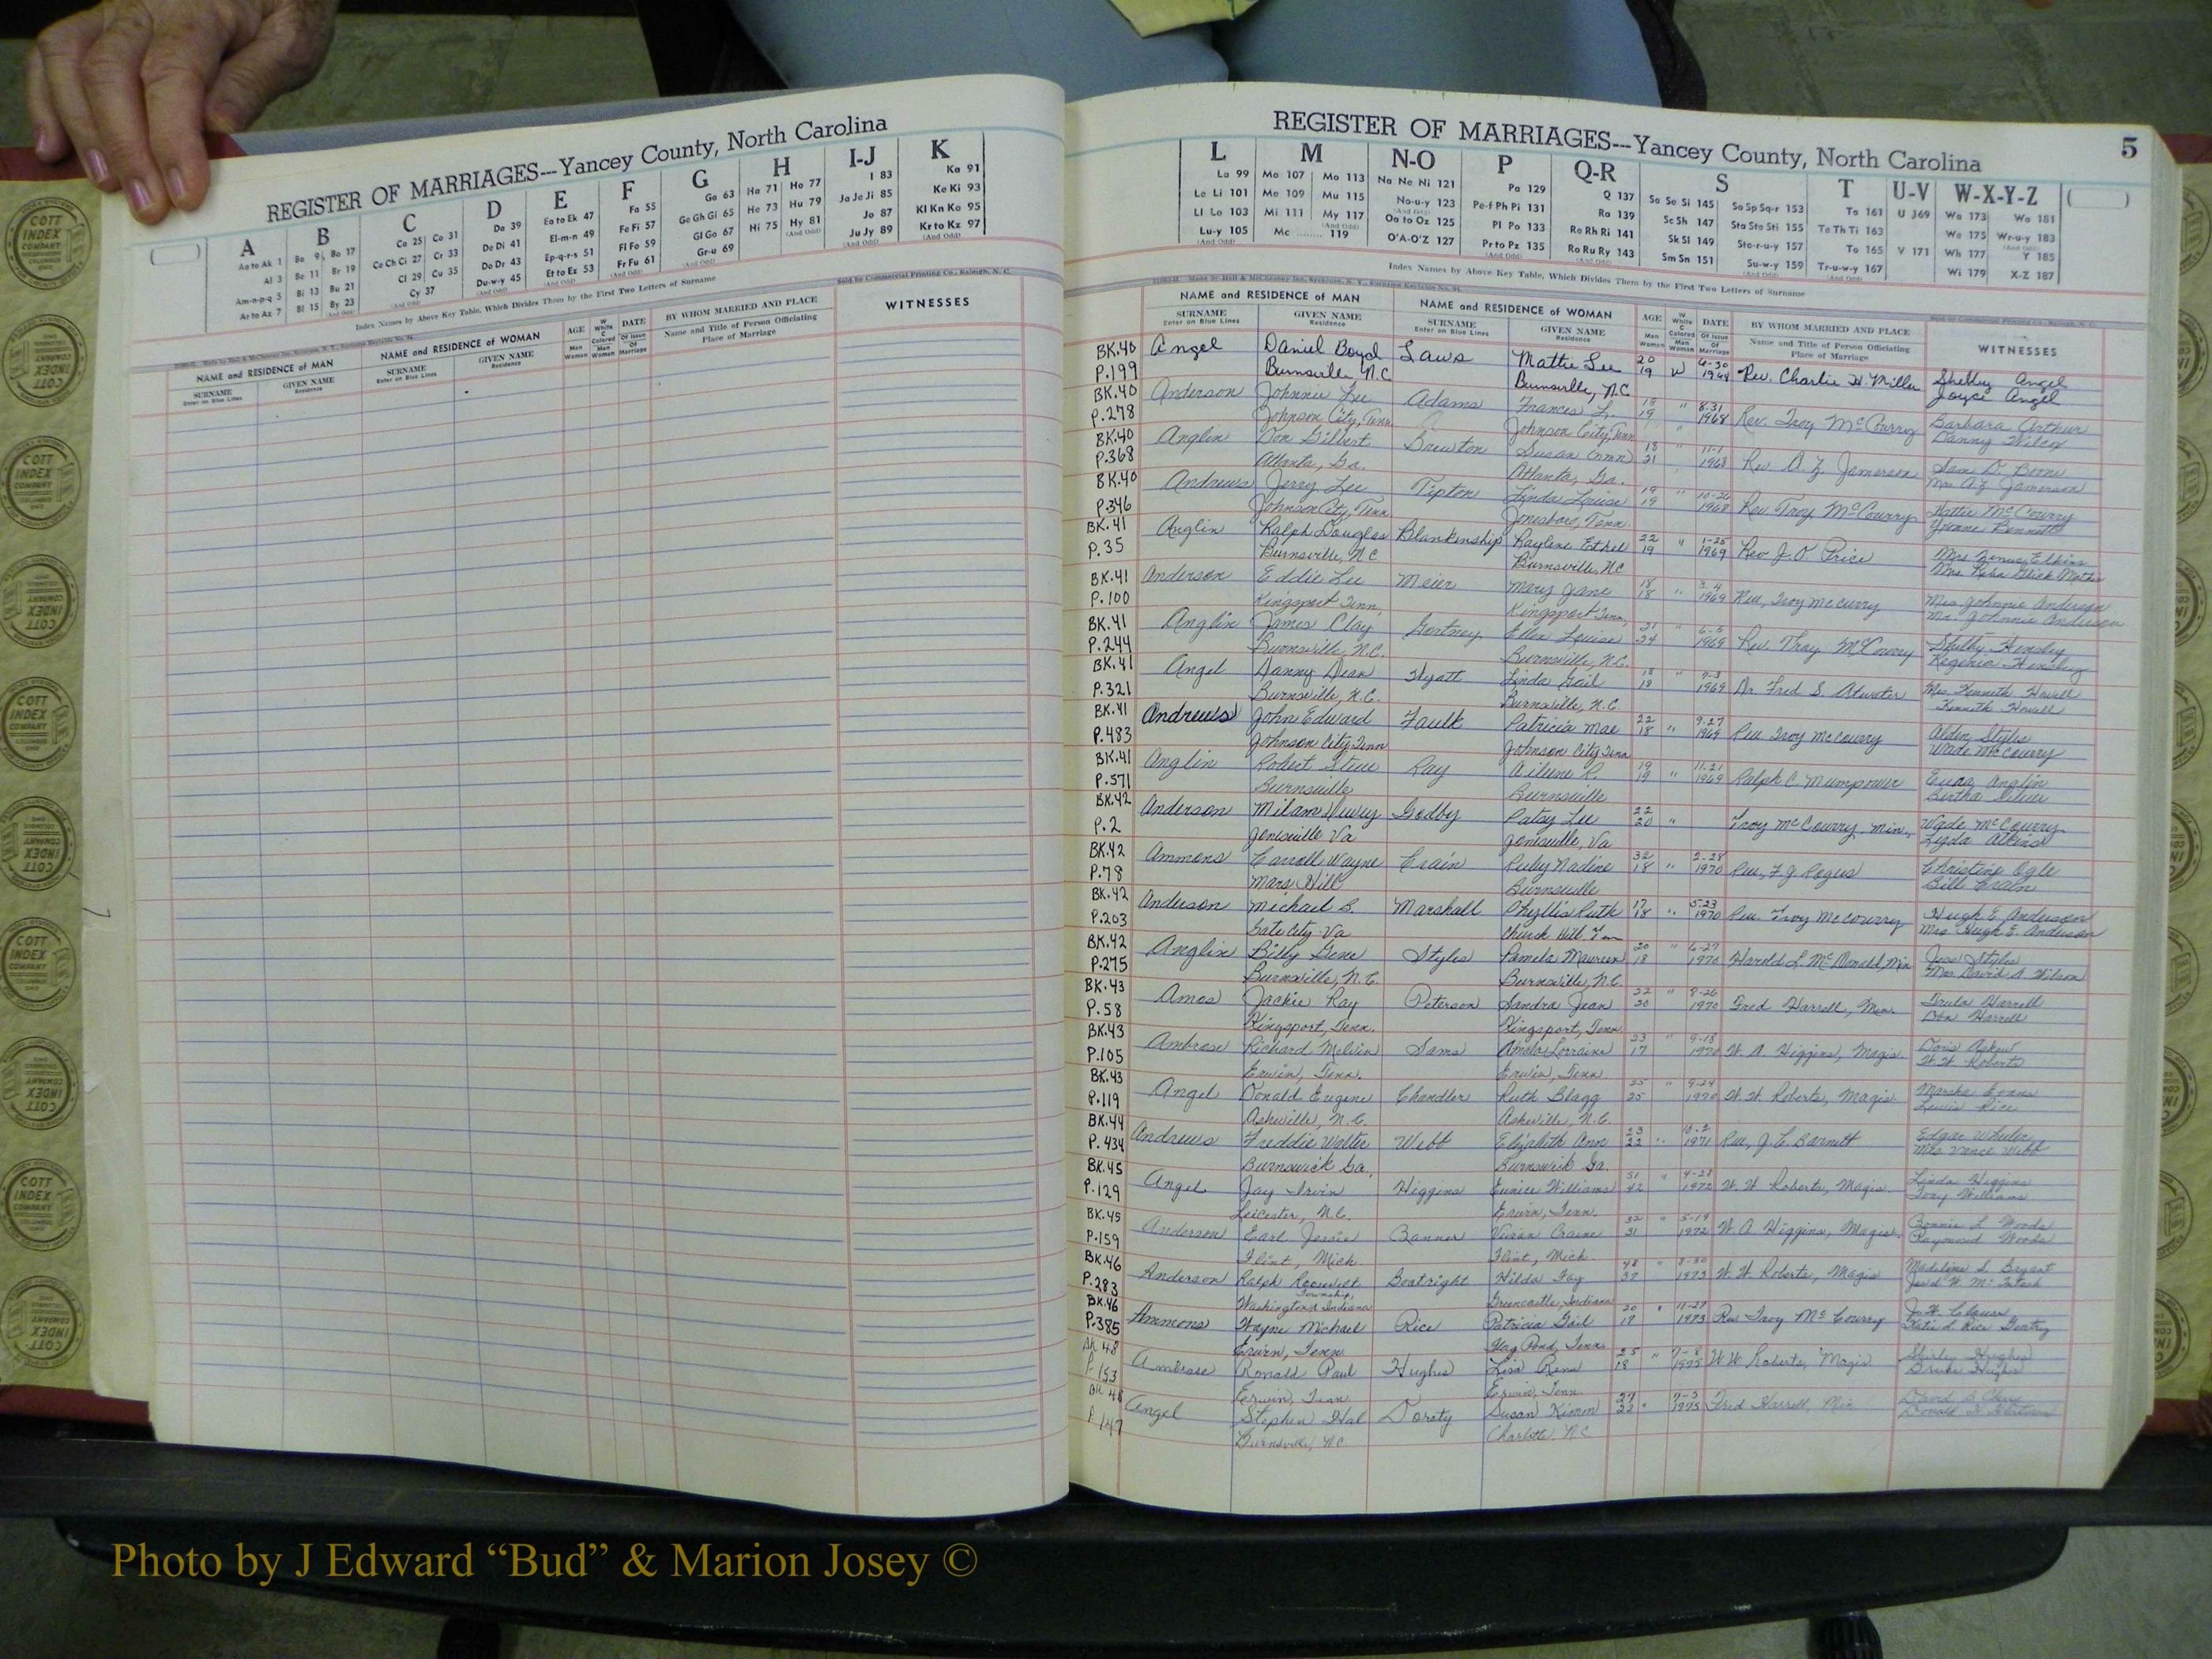 REGISTER OF MARRIAGES---Yancey County, North Carolina
A B C D E F G H I-J K
Aa to Ak 1 Ba 9 Bo 17 Ca 25 Co 31 Da 39 Ea to Ek 47 Fa 55 Ga 63 Ha 71 Ho 77 I 83 Ka 91
Al 3 Be 11 Br 19 Ce Ch Ci 27 Cr 33 De Di 41 El-m-n 49 Fe Fi 57 Ge Gh Gi 65 He 73 Hu 79 Ja Je Ji 85 Ke Ki 93
Am-n-p-q 5 Bi 13 Bu 21 Cl 29 Cu 35 Do Dr 43 Ep-q-r-s 51 Fl Fo 59 Gl Go 67 Hi 75 Hy 81 Jo 87 Kl Kn Ko 95
Ar to Az 7 Bl 15 By 23 Cy 37 Du-w-y 45 Et to Ez 53 Fr Fu 61 Gr-u 69 Ju Jy 89 Kr to Kz 97
Index Names by Above Key Table, Which Divides Them by the First Two Letters of Surname
Sold by Commercial Printing Co., Raleigh, N. C.
NAME and RESIDENCE of MAN NAME and RESIDENCE of WOMAN AGE W White C Colored DATE Of Issue BY WHOM MARRIED AND PLACE WITNESSES
SURNAME Enter on Blue Lines GIVEN NAME Residence SURNAME Enter on Blue Lines GIVEN NAME Residence Man Woman Man Woman Of Marriage Name and Title of Person Officiating Place of Marriage
REGISTER OF MARRIAGES---Yancey County, North Carolina 5
L M N-O P Q-R S T U-V W-X-Y-Z
La 99 Ma 107 Mo 113 Na Ne Ni 121 Pa 129 Q 137 Sa Se Si 145 So Sp Sq-r 153 Ta 161 U 169 Wa 173 Wo 181
Le Li 101 Me 109 Mu 115 No-u-y 123 Pe-f Ph Pi 131 Ra 139 Sc Sh 147 Sta Ste Sti 155 Te Th Ti 163 We 175 Wr-u-y 183
Ll Lo 103 Mi 111 My 117 Oa to Oz 125 Pl Po 133 Re Rh Ri 141 Sk Sl 149 Sto-r-u-y 157 To 165 V 171 Wh 177 Y 185
Lu-y 105 Mc 119 O'A-O'Z 127 Pr to Pz 135 Ro Ru Ry 143 Sm Sn 151 Su-w-y 159 Tr-u-w-y 167 Wi 179 X-Z 187
Index Names by Above Key Table, Which Divides Them by the First Two Letters of Surname
NAME and RESIDENCE of MAN NAME and RESIDENCE of WOMAN AGE W White C Colored DATE Of Issue BY WHOM MARRIED AND PLACE WITNESSES
SURNAME Enter on Blue Lines GIVEN NAME Residence SURNAME Enter on Blue Lines GIVEN NAME Residence Man Woman Man Woman Of Marriage Name and Title of Person Officiating Place of Marriage
BK.40 Angel Daniel Boyd Laws Mattie Lee 20 W 6-30 Rev. Charlie H. Miller Shelby Angel
P.199 Burnsville N.C Burnsville, N.C 19 1968 Joyce Angel
BK.40 Anderson Johnnie Lee Adams Frances L. 18 " 8-31 Rev. Troy McCourry Barbara Arthur
P.278 Johnson City, Tenn Johnson City, Tenn 19 1968 Danny Wilcox
BK.40 Anglin Don Gilbert Brewton Susan (nmn) 18 " 11-1 Rev A. Z. Jamerson Sam D. Boone
P.368 Atlanta, Ga. Atlanta, Ga. 21 1968 Mrs A.Z. Jamerson
BK.40 Andrews Jerry Lee Tipton Linda Louise 19 " 10-26 Rev Troy McCourry Hattie McCourry
P.346 Johnson City, Tenn Jonesboro, Tenn. 19 1968 Yvonne Bennett
BK.41 Anglin Ralph Douglas Blankenship Raylene Ethel 22 " 1-25 Rev J.O Price
P.35 Burnsville, NC Burnsville, NC 19 1969
BK.41 Anderson Eddie Lee Meier Mary Jane 18 " 3-4 Rev, Troy McCurry Mrs Johnnie Anderson
P.100 Kingsport Tenn, Kingsport Tenn, 18 1969 Mr. Johnnie Anderson
BK.41 Anglin James Clay Gortney Ellen Louise 21 " 6-5 Rev. Troy McCourry Shelby Hensley
P.244 Burnsville, N.C. Burnsville, N.C. 24 1969 Regenia Hensley
BK.41 Angel Danny Dean Hyatt Linda Gail 18 " Dr Fred S. Atwater Mrs. Kenneth Howell
P.321 Burnsville, N.C. Burnsville, N.C 18 1969 Kenneth Howell
BK.41 Andrews John Edward Faulk Patricia Mae 22 9-27 Rev Troy McCourry Alden Styles
P.483 Johnson City Tenn Johnson City Tenn 18 " 1969 Wade McCourry
BK.41 Anglin Robert Steve Ray Aileene R. 19 11-21 Ralph C Mumpower Anglin
P.571 Burnsville Burnsville 19 " 1969 Bertha Silver
BK.42 Anderson Milam Godby Patsy Lee 22 Troy McCourry, Min., Wade McCourry
P.2 Jonesville Va Jonesville, Va 20 " Lyda Atkins
BK.42 Ammons Carroll Wayne Crain Ruby Nadine 32 2-28 Rev, F.J. Rogers Christine Ogle
P.78 Mars Hill Burnsville 18 " 1970 Bill Crain
BK.42 Anderson Michael B. Marshall Phyllis Ruth 17 5-23 Rev. Troy McCourry Hugh E. Anderson
P.203 Gate City Va Church Hill Tenn 18 " 1970 Mrs. Hugh E. Anderson
BK.42 Anglin Billy Gene Styles Pamela Maureen 20 " 6-27 Harold L. McDonald, Min Jess Styles
P.275 Burnsville, N.C. Burnsville, N.C. 18 1970 Mrs David A Wilson
BK.43 Amos Jackie Ray Peterson Sandra Jean 22 " 8-26 Fred Harrell, Min. Harrell
P.58 Kingsport, Tenn. Kingsport, Tenn 20 1970 Don Harrell
BK.43 Ambrose Richard Melvin Sams Lorraine 23 " 9-18 W. A Higgins, Magis. Doris Askew
P.105 Erwin, Tenn. Erwin, Tenn. 17 1970 W.W. Roberts
BK.43 Angel Donald Eugene Chandler Ruth Blagg 25 " 9-24 W. W. Roberts, Magis Marsha Evans
P.119 Asheville, N.C. Asheville, N.C. 25 1970 Lewis Rice
BK.44 Andrews Freddie Walter Webb Elizabeth Ann 23 10-2 Rev, J. C. Barnett Edgar Wheeler
P.434 Burnswick Ga, Burnswick Ga. 22 " 1971 Mrs Vance Webb
BK.45 Angel Jay Irvin Higgins Eunice Williams 51 " 4-28 W. W Roberts, Magis. Linda Higgins
P.129 Leicester, N.C. Erwin, Tenn. 42 1972 Tony Williams
BK.45 Anderson Earl Jessie Banner Vivian Craine 32 " 5-19 W. A Higgins, Magis. Bonnie L Woods
P.159 Flint, Mich. Flint, Mich. 31 1972 Raymond Woods
BK.46 Anderson Ralph Roosevelt Boatright Hilda Fay 48 " 8-30 W. W. Roberts, Magis Madeline S. Bryant
P.283 Washington Township, Indiana Greencastle, Indiana 37 1973
BK.46 Ammons Wayne Michael Rice Patricia Gail 20 " 11-27 Rev Troy McCourry J. W. Clouse
P.385 Erwin, Tenn Flag Pond, Tenn 17 1973 Katie L. Rice Gentry
BK 48 Ambrose Ronald Paul Hughes Lisa Rene 25 " 7-8 W W Roberts, Magis Shirley Hughes
P.153 Erwin, Tenn Erwin, Tenn 18 1975 Hughes
BK 48 Angel Stephen Hal Doraty Susan 27 " 7-3 Fred Harrell, Min
P.147 Burnsville, NC. Charlotte, NC 22 1975
Photo by J Edward “Bud” & Marion Josey ©